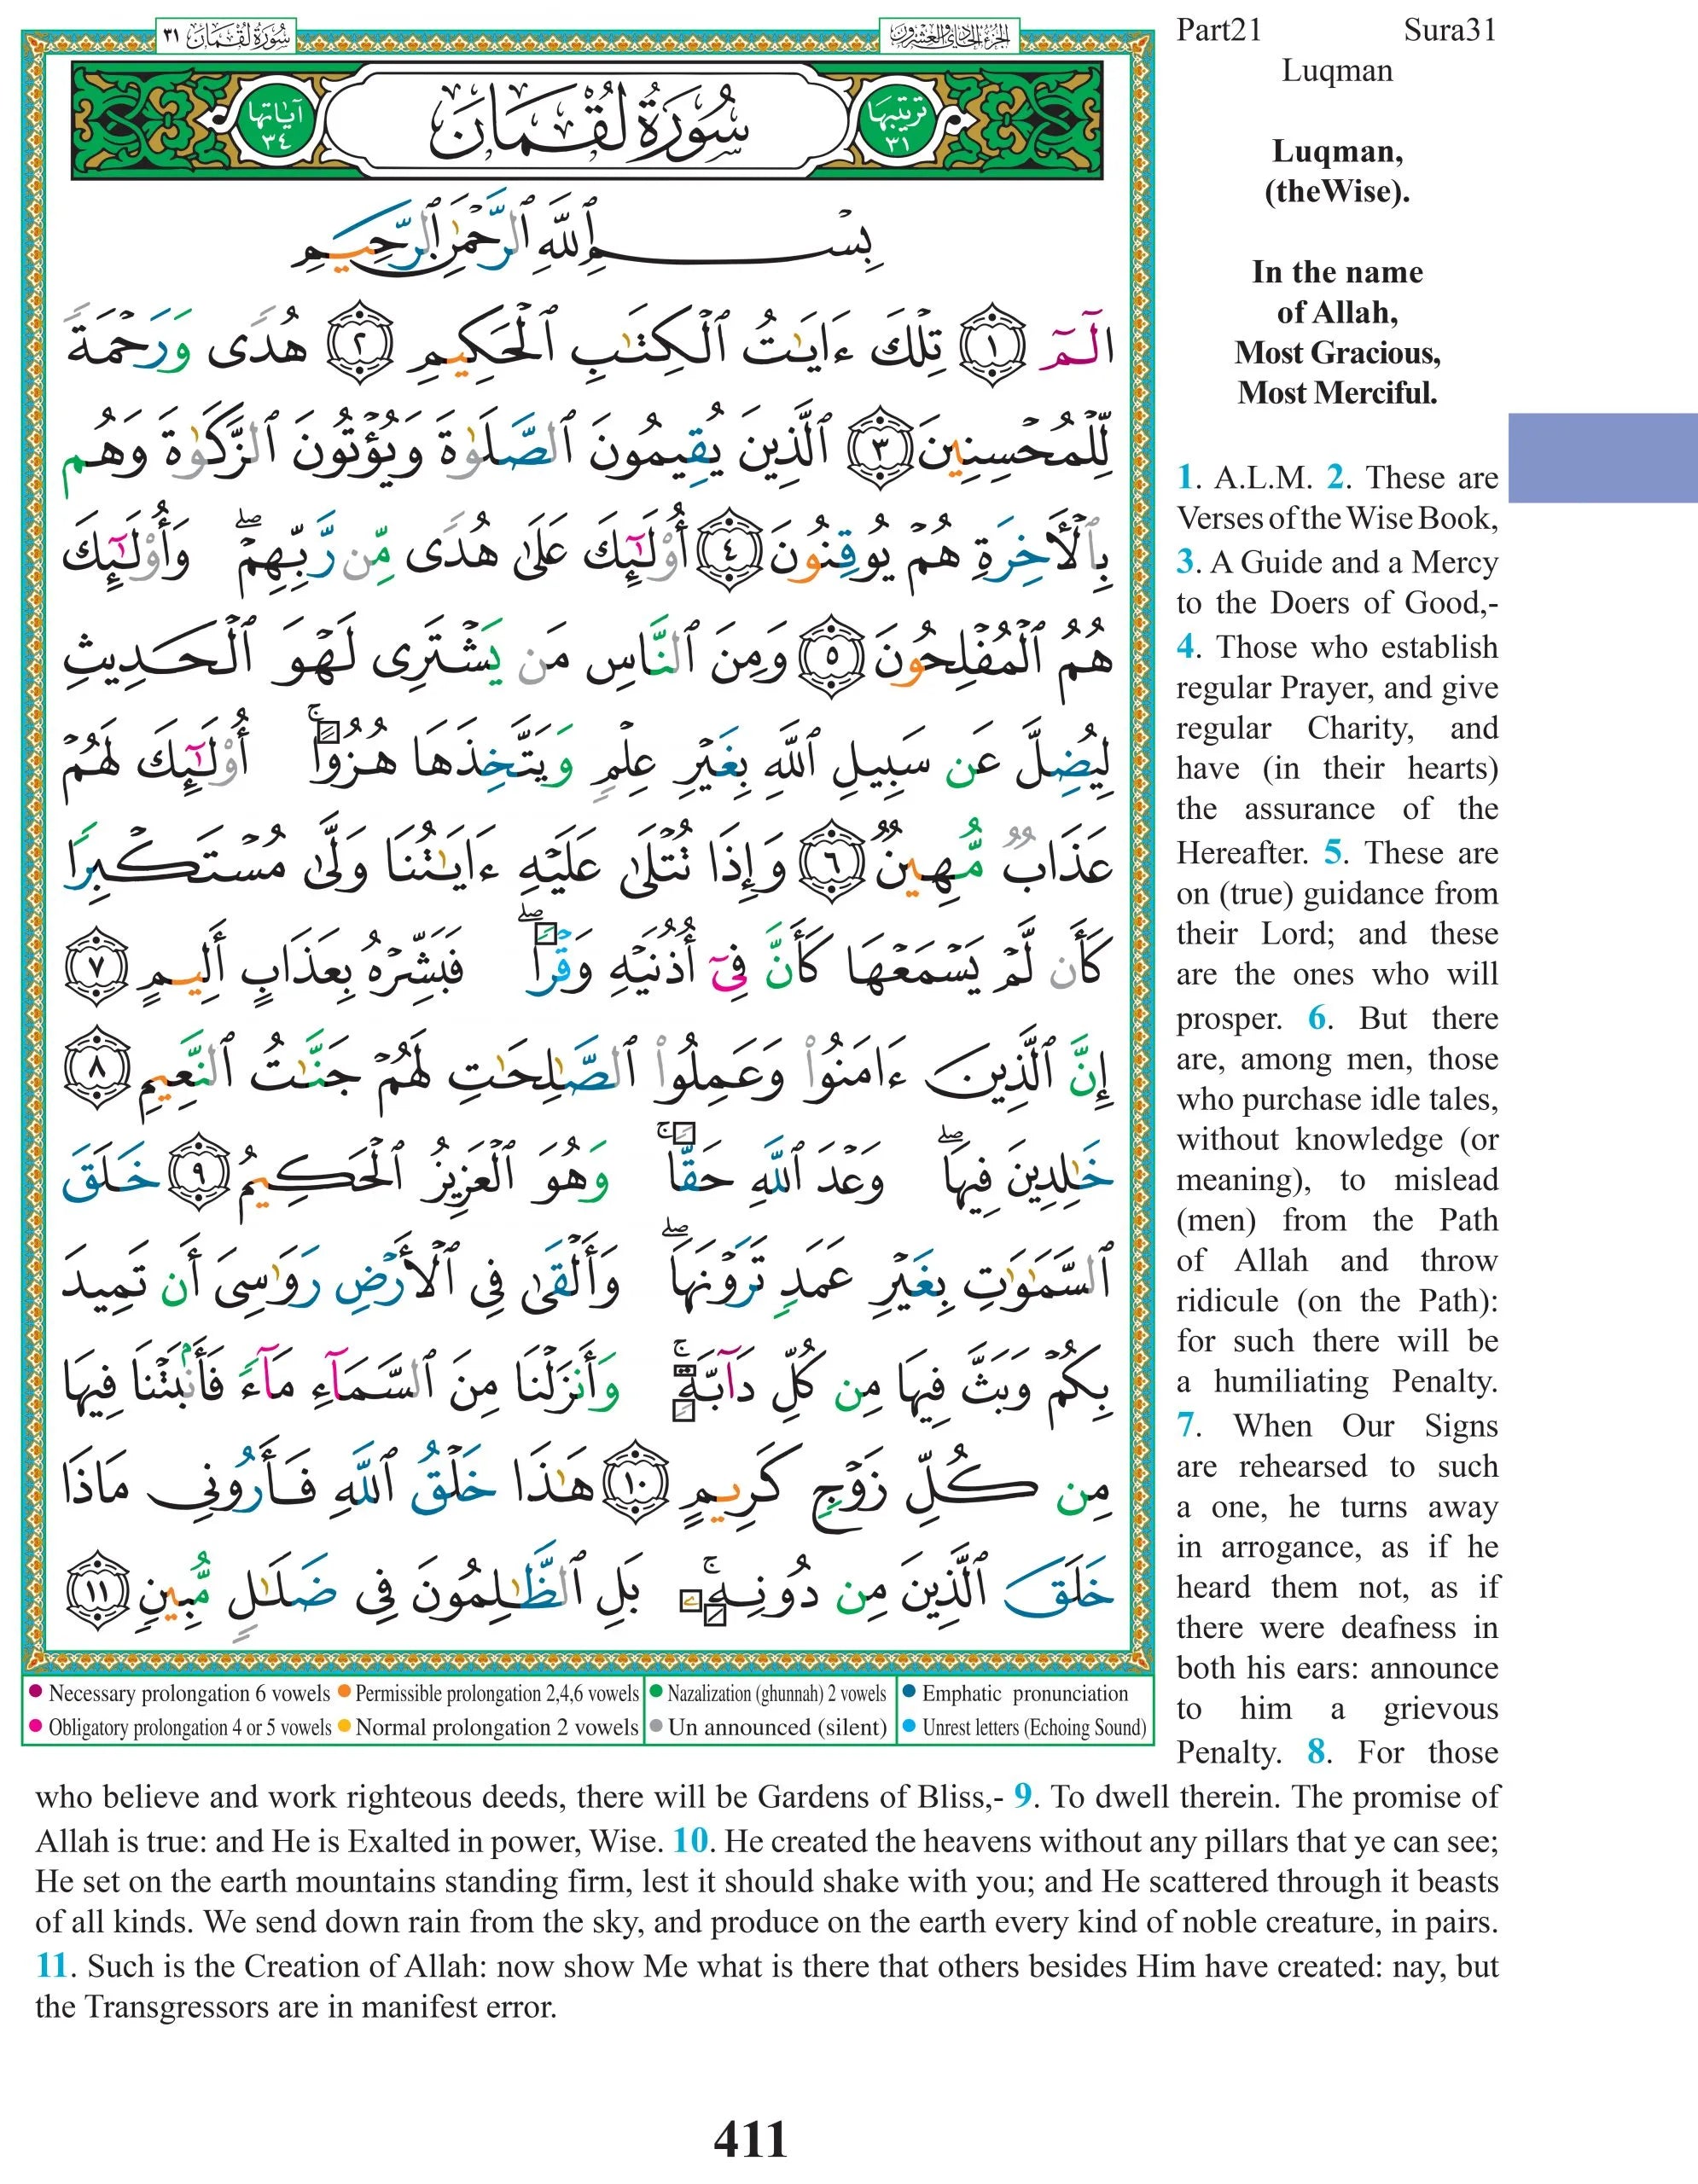 سُورَةُ لُقْمَانَ ٣١
الجُزءُ الحَادِي وَالعِشرُونَ
Part21 Sura31
Luqman
آيَاتها ٣٤
سُورَةُ لُقْمَانَ
ترتيبها ٣١
بِسْمِ ٱللَّهِ ٱلرَّحْمَٰنِ ٱلرَّحِيمِ
الٓمٓ ١ تِلْكَ ءَايَٰتُ ٱلْكِتَٰبِ ٱلْحَكِيمِ ٢ هُدًى وَرَحْمَةً
لِّلْمُحْسِنِينَ ٣ ٱلَّذِينَ يُقِيمُونَ ٱلصَّلَوٰةَ وَيُؤْتُونَ ٱلزَّكَوٰةَ وَهُم
بِٱلْأَخِرَةِ هُمْ يُوقِنُونَ ٤ أُوْلَٰٓئِكَ عَلَىٰ هُدًى مِّن رَّبِّهِمْ ۖ وَأُوْلَٰٓئِكَ
هُمُ ٱلْمُفْلِحُونَ ٥ وَمِنَ ٱلنَّاسِ مَن يَشْتَرِى لَهْوَ ٱلْحَدِيثِ
لِيُضِلَّ عَن سَبِيلِ ٱللَّهِ بِغَيْرِ عِلْمٍ وَيَتَّخِذَهَا هُزُوًا ۚ أُوْلَٰٓئِكَ لَهُمْ
عَذَابٌ مُّهِينٌ ٦ وَإِذَا تُتْلَىٰ عَلَيْهِ ءَايَٰتُنَا وَلَّىٰ مُسْتَكْبِرًا
كَأَن لَّمْ يَسْمَعْهَا كَأَنَّ فِىٓ أُذُنَيْهِ وَقْرًا ۖ فَبَشِّرْهُ بِعَذَابٍ أَلِيمٍ ٧
إِنَّ ٱلَّذِينَ ءَامَنُوا۟ وَعَمِلُوا۟ ٱلصَّٰلِحَٰتِ لَهُمْ جَنَّٰتُ ٱلنَّعِيمِ ٨
خَٰلِدِينَ فِيهَا ۖ وَعْدَ ٱللَّهِ حَقًّا ۚ وَهُوَ ٱلْعَزِيزُ ٱلْحَكِيمُ ٩ خَلَقَ
ٱلسَّمَٰوَٰتِ بِغَيْرِ عَمَدٍ تَرَوْنَهَا ۖ وَأَلْقَىٰ فِى ٱلْأَرْضِ رَوَٰسِىَ أَن تَمِيدَ
بِكُمْ وَبَثَّ فِيهَا مِن كُلِّ دَآبَّةٍ ۚ وَأَنزَلْنَا مِنَ ٱلسَّمَآءِ مَآءً فَأَنۢبَتْنَا فِيهَا
مِن كُلِّ زَوْجٍ كَرِيمٍ ١٠ هَٰذَا خَلْقُ ٱللَّهِ فَأَرُونِى مَاذَا
خَلَقَ ٱلَّذِينَ مِن دُونِهِۦ ۚ بَلِ ٱلظَّٰلِمُونَ فِى ضَلَٰلٍ مُّبِينٍ ١١
Necessary prolongation 6 vowels Permissible prolongation 2,4,6 vowels Nazalization (ghunnah) 2 vowels Emphatic pronunciation
Obligatory prolongation 4 or 5 vowels Normal prolongation 2 vowels Un announced (silent) Unrest letters (Echoing Sound)
Luqman,
(theWise).
In the name
of Allah,
Most Gracious,
Most Merciful.
1. A.L.M. 2. These are
Verses of the Wise Book,
3. A Guide and a Mercy
to the Doers of Good,-
4. Those who establish
regular Prayer, and give
regular Charity, and
have (in their hearts)
the assurance of the
Hereafter. 5. These are
on (true) guidance from
their Lord; and these
are the ones who will
prosper. 6. But there
are, among men, those
who purchase idle tales,
without knowledge (or
meaning), to mislead
(men) from the Path
of Allah and throw
ridicule (on the Path):
for such there will be
a humiliating Penalty.
7. When Our Signs
are rehearsed to such
a one, he turns away
in arrogance, as if he
heard them not, as if
there were deafness in
both his ears: announce
to him a grievous
Penalty. 8. For those
who believe and work righteous deeds, there will be Gardens of Bliss,- 9. To dwell therein. The promise of
Allah is true: and He is Exalted in power, Wise. 10. He created the heavens without any pillars that ye can see;
He set on the earth mountains standing firm, lest it should shake with you; and He scattered through it beasts
of all kinds. We send down rain from the sky, and produce on the earth every kind of noble creature, in pairs.
11. Such is the Creation of Allah: now show Me what is there that others besides Him have created: nay, but
the Transgressors are in manifest error.
411